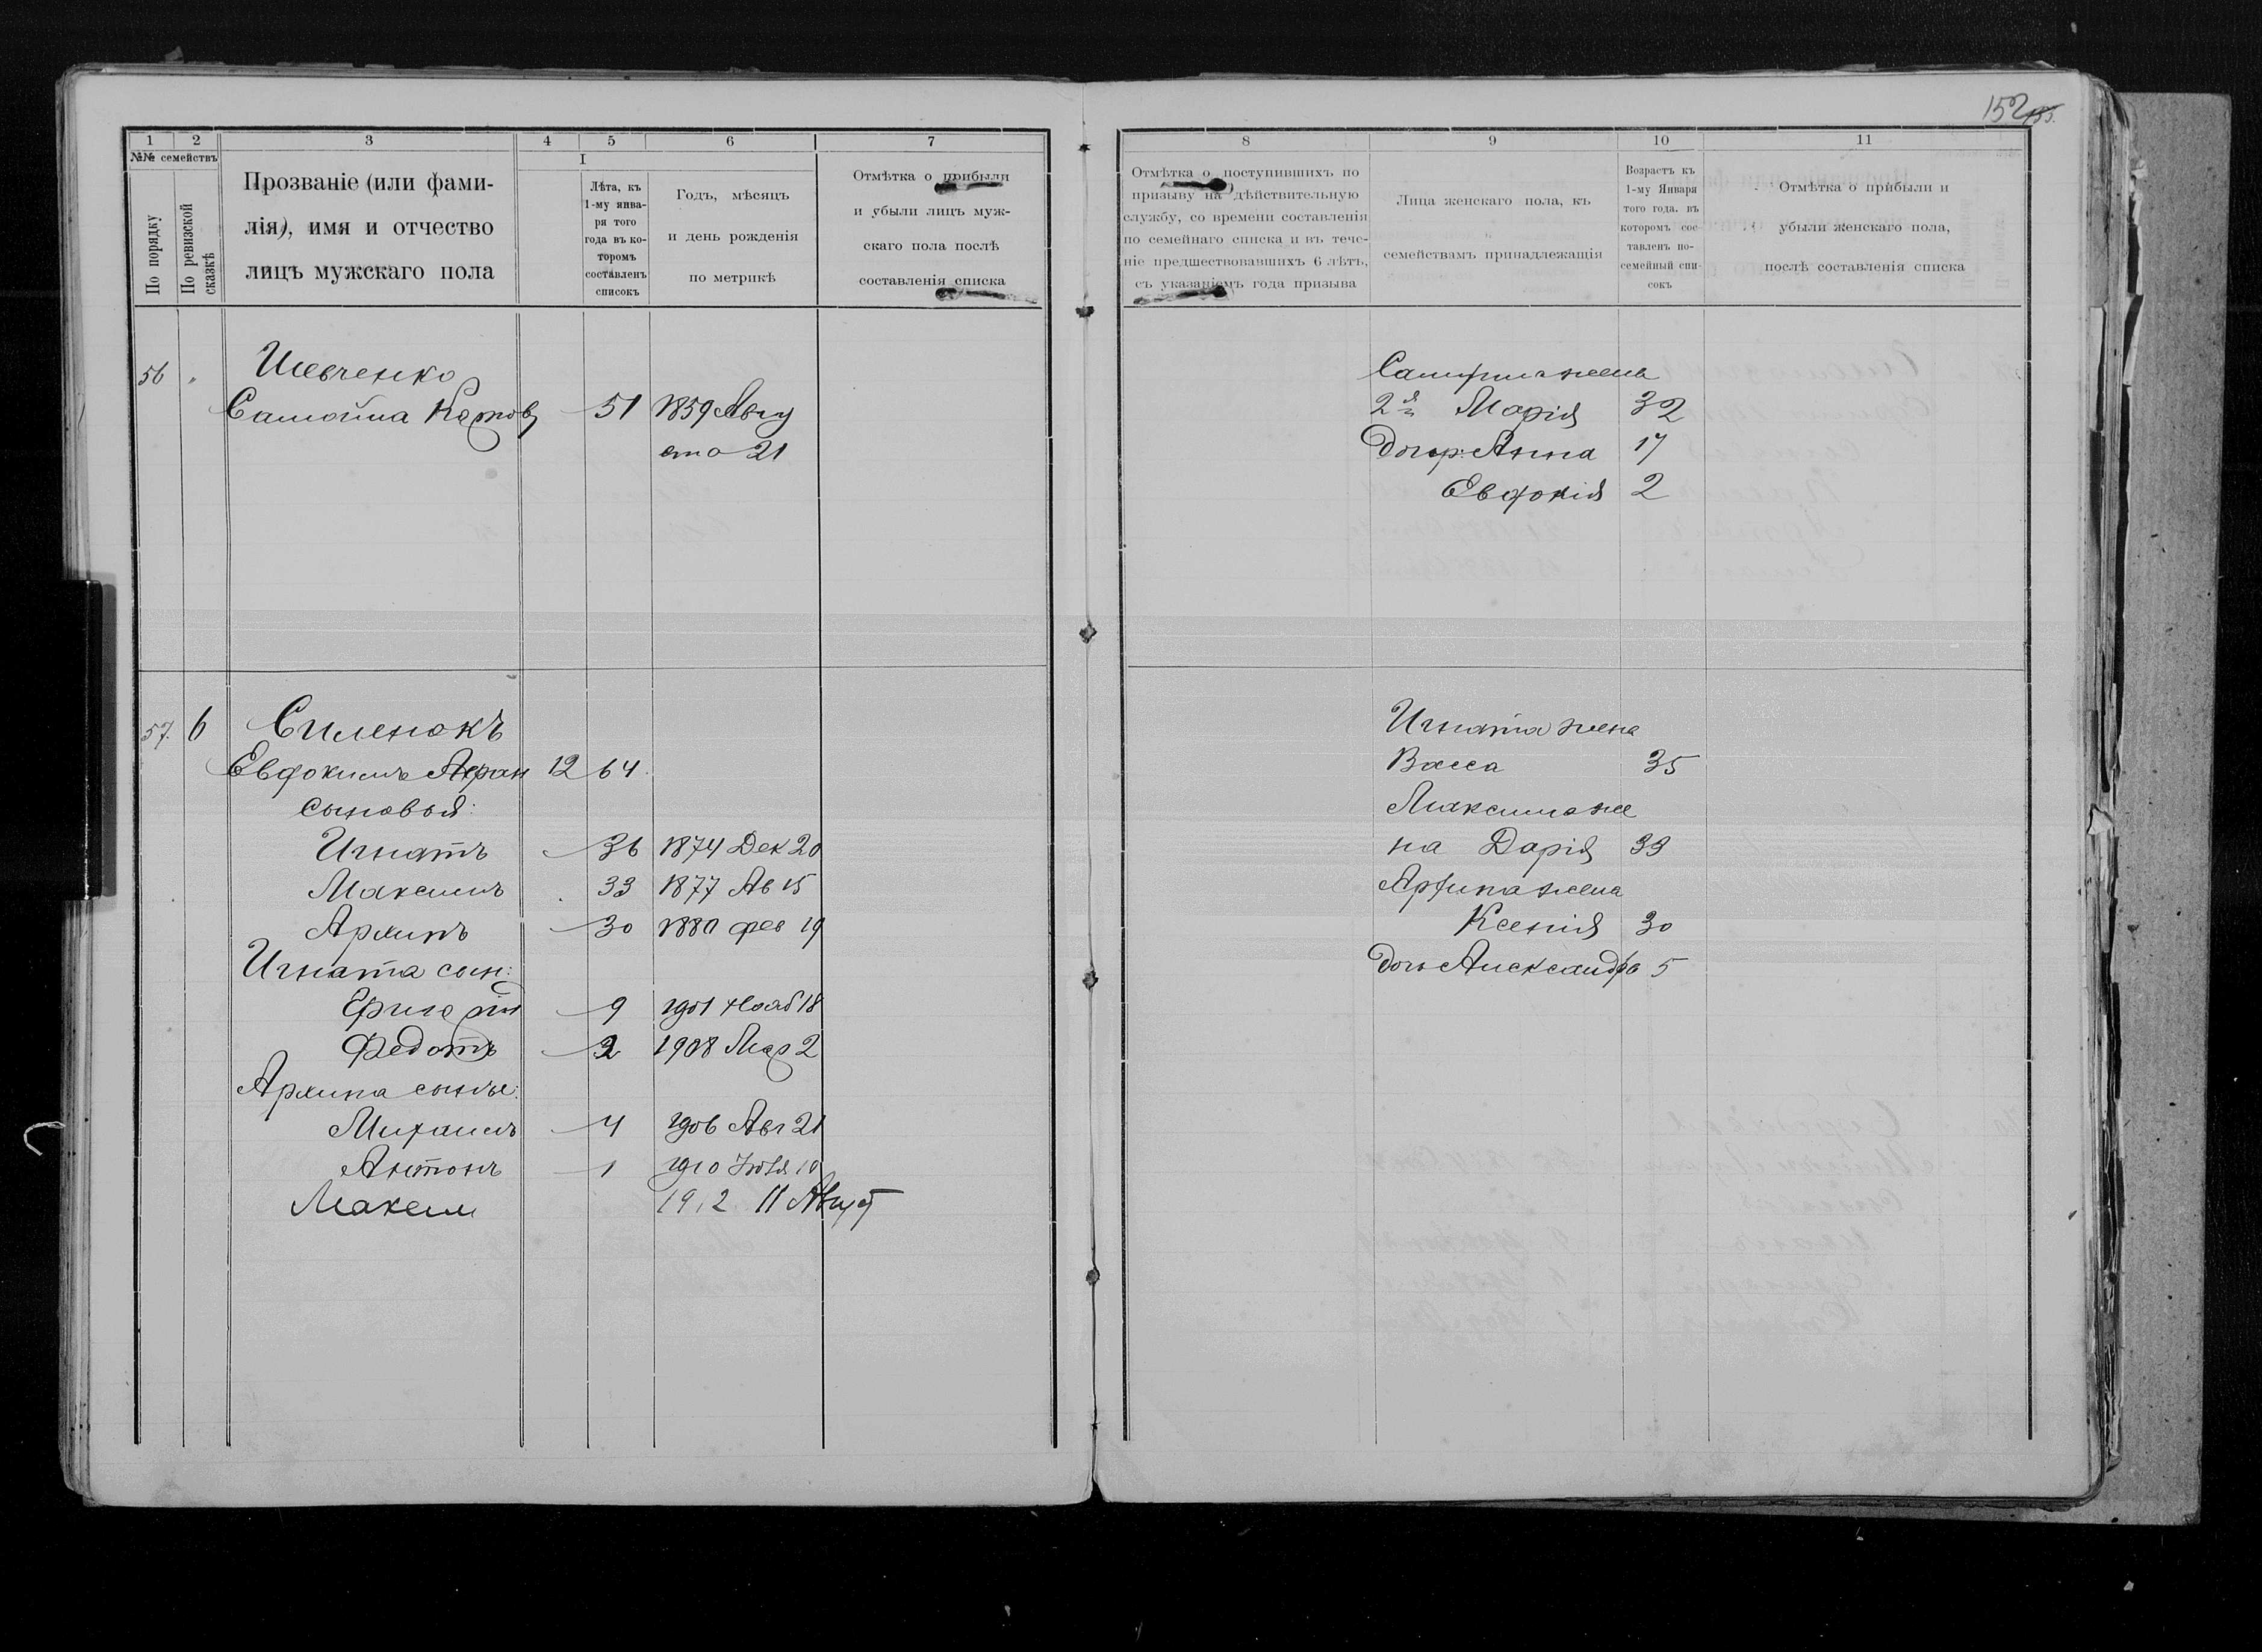 152 155.
1 2 3 4 5 6 7
№№ семействъ
По порядку
По ревизской сказкѣ
Прозваніе (или фами-
лія), имя и отчество
лицъ мужскаго пола
I
Лѣта, къ
1-му янва-
ря того
года въ ко-
торомъ
составленъ
списокъ
Годъ, мѣсяцъ
и день рожденія
по метрикѣ
Отмѣтка о прибыли
и убыли лицъ муж-
скаго пола послѣ
составленія списка
56 " Шевченко
51 1859 Авгу
ста 21
57. 6 Силенокъ
Евдокимъ 12 64
сыновья:
Игнатъ 36 1874 Дек 20
Максимъ 33 1877 Ав 15
Архипъ 30 1880 фев 19
Игната сын:
Григорій 9 1901 Нояб 18
Федотъ 2 1908 Мар 2
Архипа сынъе:
Михаилъ 4 1906 Авг 21
Антонъ 1 1910 Іюля 10
Максим 1912 11 Август
8 9 10 11
Отмѣтка о поступившихъ по
призыву на дѣйствительную
службу, со времени составленія
по семейнаго списка и въ тече-
ніе предшествовавшихъ 6 лѣтъ,
съ указаніемъ года призыва
Лица женскаго пола, къ
семействамъ принадлежащія
Возрастъ къ
1-му Января
того года. въ
которомъ сос-
тавленъ по-
семейный спи-
сокъ
Отмѣтка о прибыли и
убыли женскаго пола,
послѣ составленія списка
жена
2я Марія 32
дочер: Анна 17
Евдокія 2
Игната жена
Васса 35
Максима же
на Дарія 33
Архипа жена
Ксенія 30
дочь Александра 5